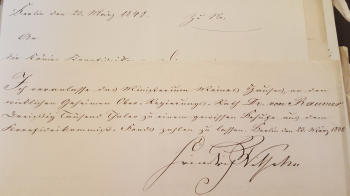 Berlin den 23. März 1848.
Zu No.
An
die Königl.
Ich veranlasse das Ministerium Meines Hauses, an den
wirklichen Geheimen Ober-Regierungs-Rath Dr. von Raumer
Dreißig tausend Thaler zu einem gewissen Behufe aus dem
Kronfideikommiß-Fonds zahlen zu lassen. Berlin den 23. März 1848
Friedrich Wilhelm